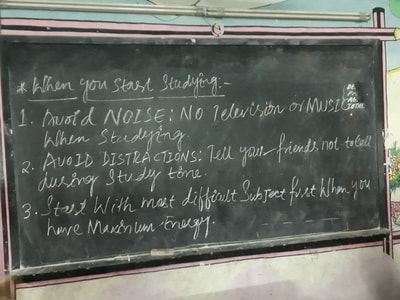 * When you start studying:-
1. Avoid NOISE: NO Television or MUSIC
When Studying.
2. AVOID DISTRACTIONS: Tell your friends not to Call
during Study time.
3. Start With most difficult Subject first When you
have Maximum Energy.